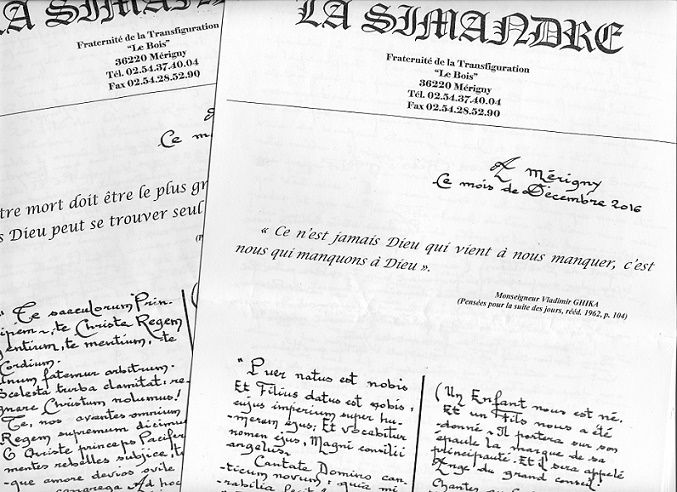 LA SIMANDRE
Fraternité de la Transfiguration
"Le Bois"
36220 Mérigny
Tél. 02.54.37.40.04
Fax 02.54.28.52.90
A Mérigny
Ce mois de Décembre 2016
« Ce n'est jamais Dieu qui vient à nous manquer, c'est
nous qui manquons à Dieu ».
Monseigneur Vladimir GHIKA
(Pensées pour la suite des jours, rééd. 1962, p. 104)
" Puer natus est nobis
Et Filius datus est nobis,
cujus imperium super hu-
merum ejus; Et vocabitur
nomen ejus, Magni consilii
angelus.
Cantate Domino can-
ticum novum : quia mi-
rabilia fecit
(Un Enfant nous est né.
Et un Fils nous a été
donné. Il portera sur son
épaule la marque de sa
principauté. Et il sera appelé
Ange du grand conseil!
Chantez
A SIMAN
Fraternité de la Transfiguration
"Le Bois"
36220 Mérigny
Tél. 02.54.37.40.04
Fax 02.54.28.52.90
Ce m
tre mort doit être le plus gr
s Dieu peut se trouver seul
" Te saeculorum Prin-
cipem, te Christe Regem
gentium, te mentium, te
Cordium.
Unum fatemur arbitrum.
Scelesta turba clamitat: re-
gnare Christum nolumus!
Te, nos ovantes omnium
Regem supremum dicimus
O Christe princeps Pacifer
mentes rebelles subjice, t
que amore devios ovile
Ad hoc